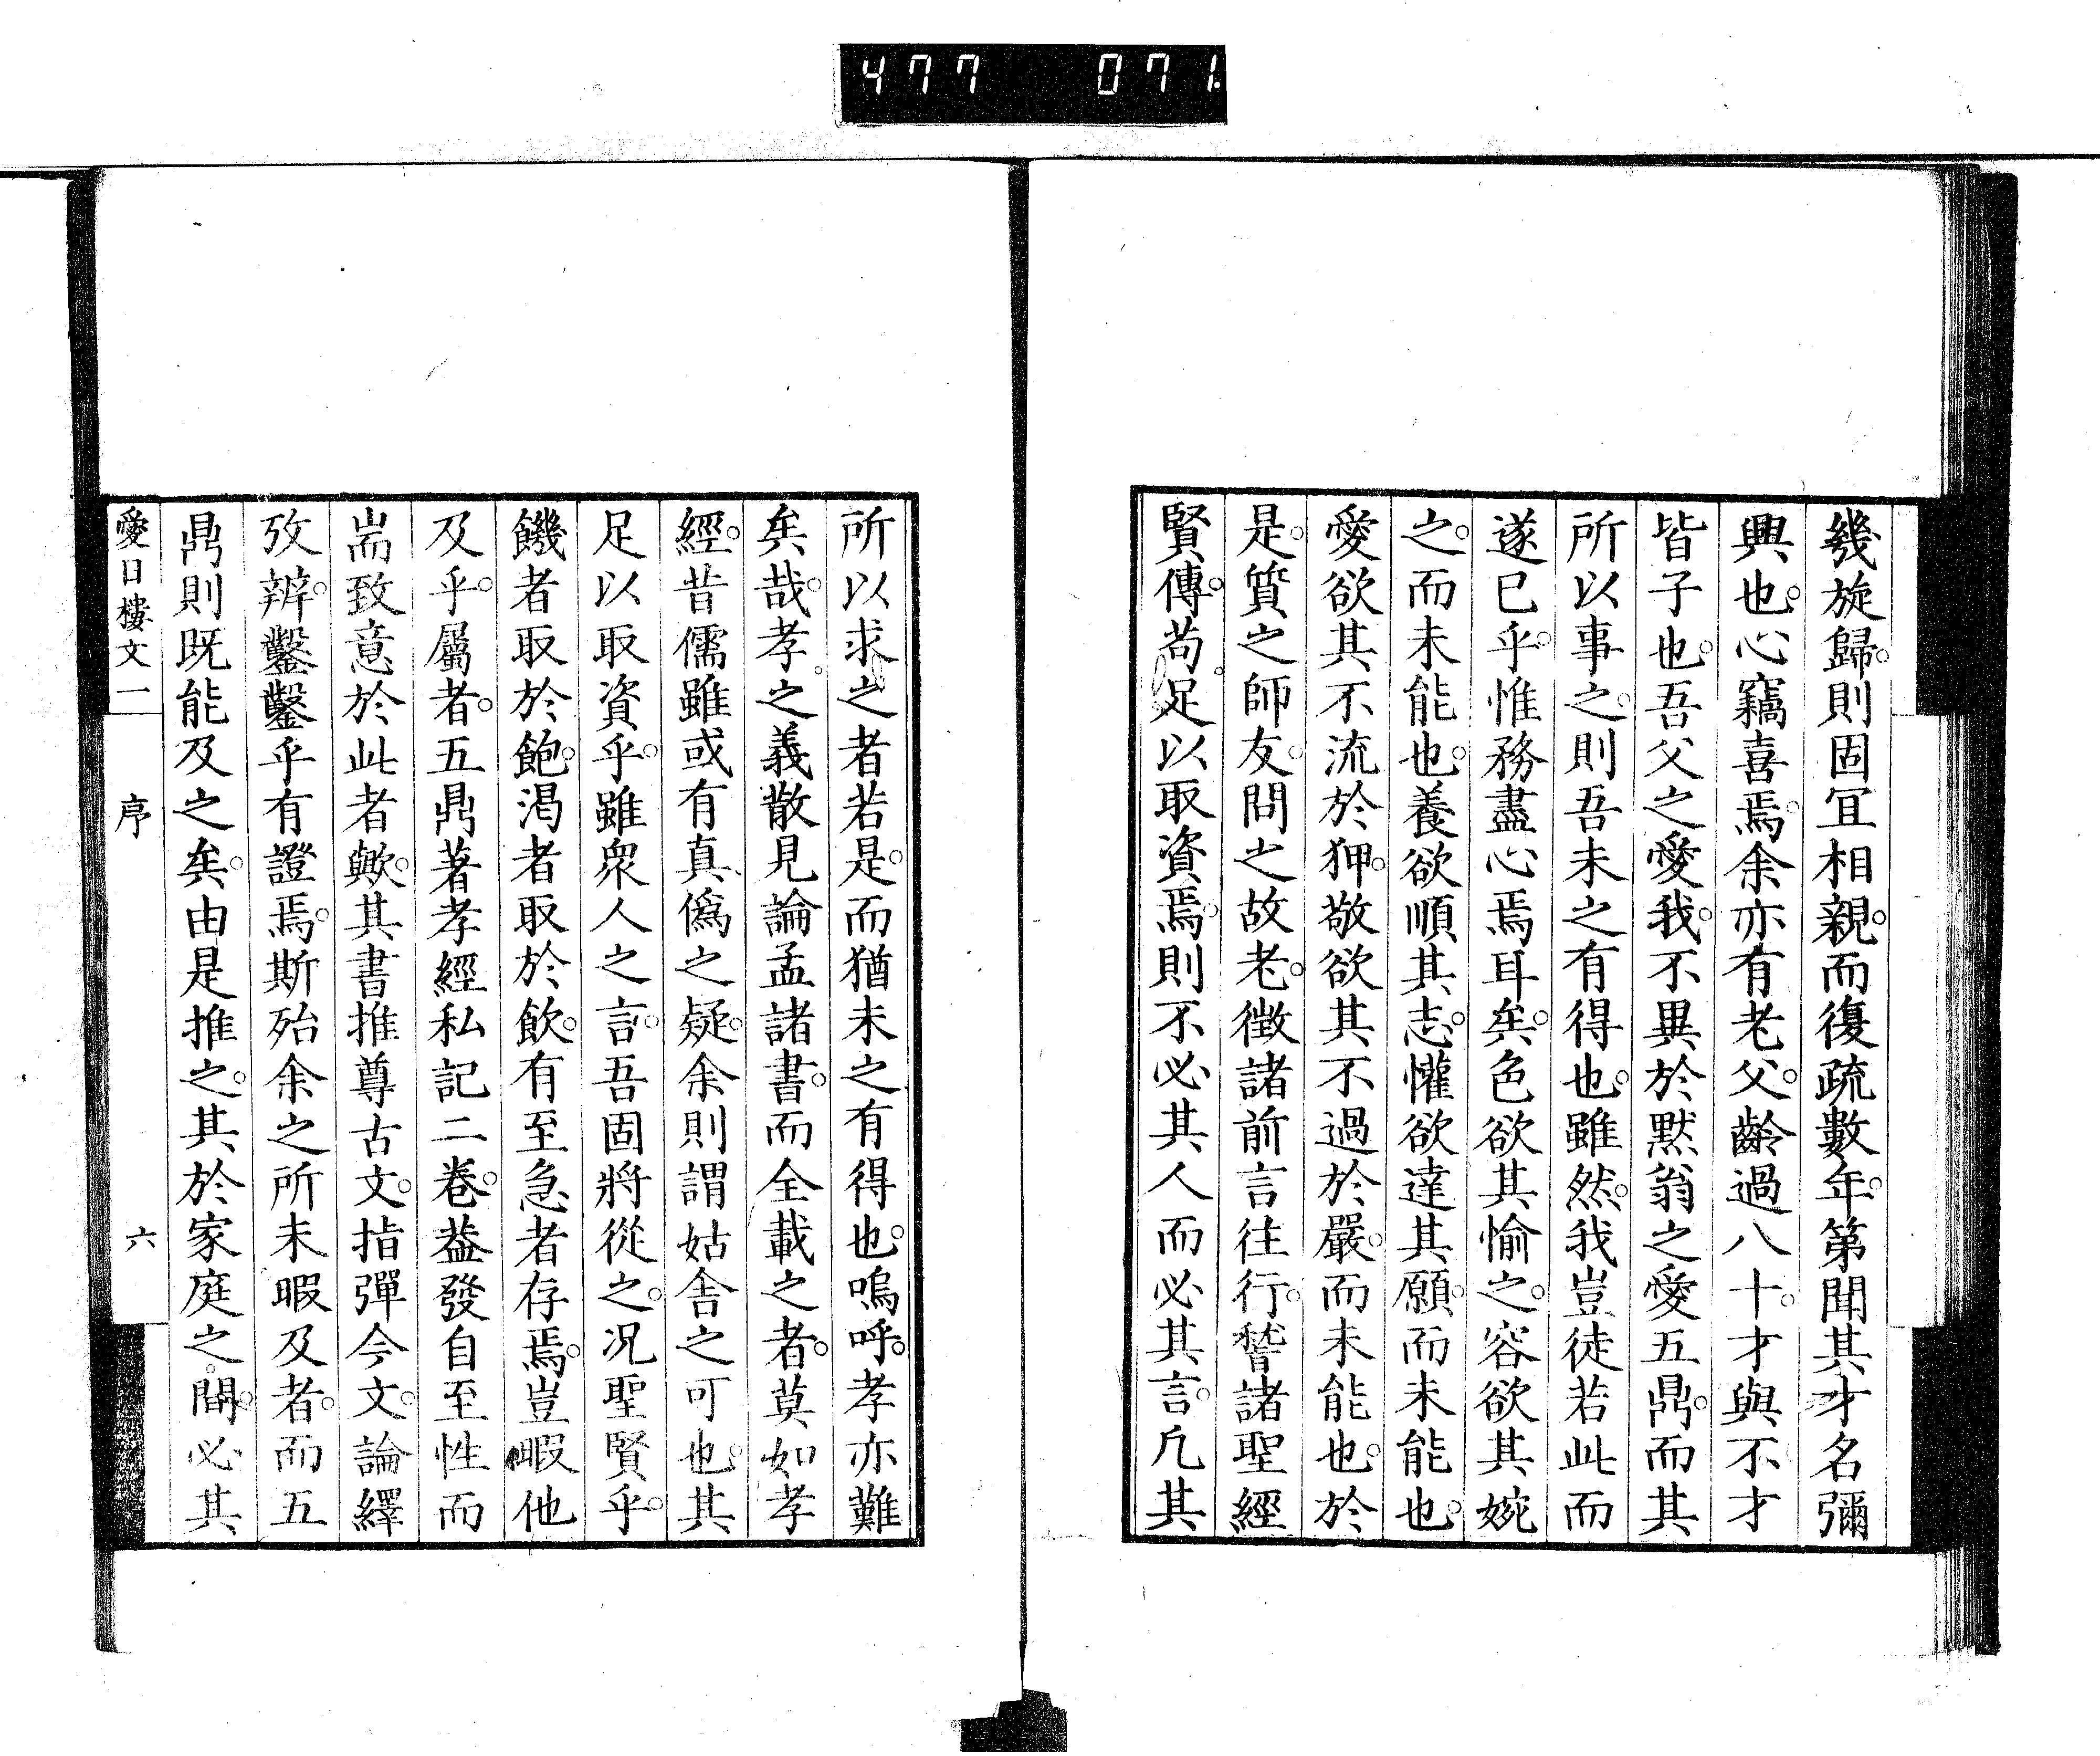 477 071.
幾旋歸。則固冝相親。而復疏數年。第聞其才名彌
興也。心竊喜焉。余亦有老父。齡過八十。才與不才
皆子也。吾父之愛我。不異於默翁之愛五鼎。而其
所以事之。則吾未之有得也。雖然。我豈徒若此而
遂已乎。惟務盡心焉耳矣。色欲其愉之。容欲其婉
之。而未能也。養欲順其志。懽欲達其願。而未能也。
愛欲其不流於狎。敬欲其不過於嚴。而未能也。於
是。質之師友。問之故老。徵諸前言往行。誓諸聖經
賢傳。苟。足以取資焉。則不必其人而必其言。凡其
所以求之者若是。而猶未之有得也。嗚呼。孝亦難
矣哉。孝之義散見論孟諸書。而全載之者。莫如孝
經。昔儒雖或有真僞之疑。余則謂姑舍之可也。其
足以取資乎。雖衆人之言。吾固將從之。况聖賢乎。
饑者取於飽。渴者取於飲。有至急者存焉。豈暇他
及乎。屬者。五鼎著孝經私記二卷。葢發自至性而
耑致意於此者歟。其書推尊古文。指彈今文。論繹
攷辨。鑿鑿乎有證焉。斯殆余之所未暇及者。而五
鼎則既能及之矣。由是推之。其於家庭之間。必其
愛日樓文一 序 六